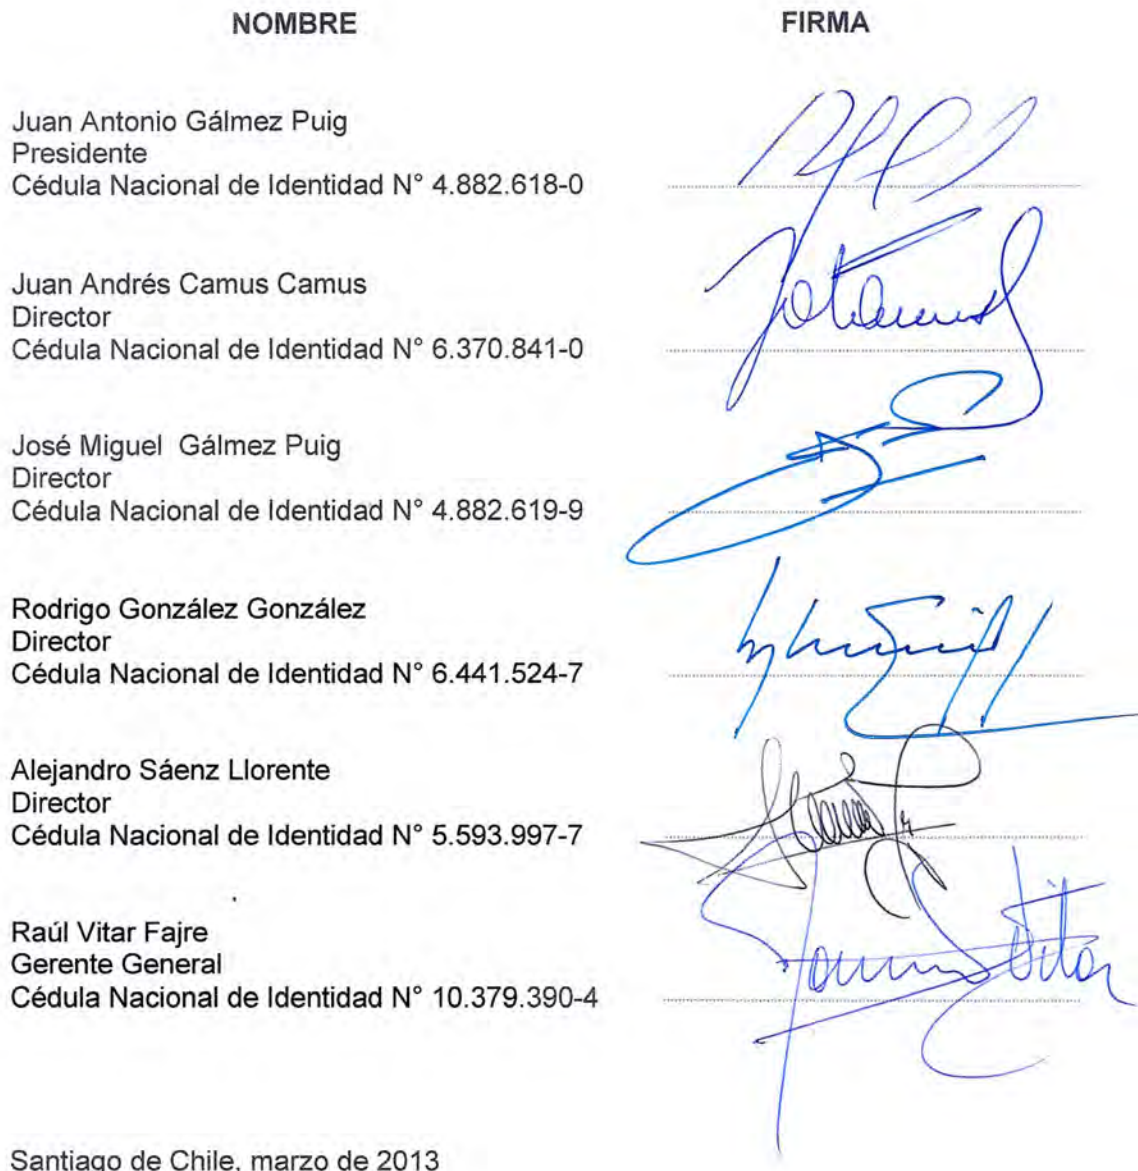 NOMBRE FIRMA
Juan Antonio Gálmez Puig
Presidente
Cédula Nacional de Identidad N° 4.882.618-0
Juan Andrés Camus Camus
Director
Cédula Nacional de Identidad N° 6.370.841-0
José Miguel Gálmez Puig
Director
Cédula Nacional de Identidad N° 4.882.619-9
Rodrigo González González
Director
Cédula Nacional de Identidad N° 6.441.524-7
Alejandro Sáenz Llorente
Director
Cédula Nacional de Identidad N° 5.593.997-7
Raúl Vitar Fajre
Gerente General
Cédula Nacional de Identidad N° 10.379.390-4
Santiago de Chile, marzo de 2013